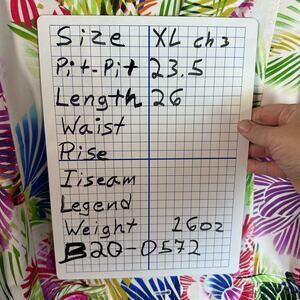 Size XL ch3
Pit-Pit 23.5
Length 26
Waist
Rise
Iiseam
Legend
Weight 16oz
B20-0572